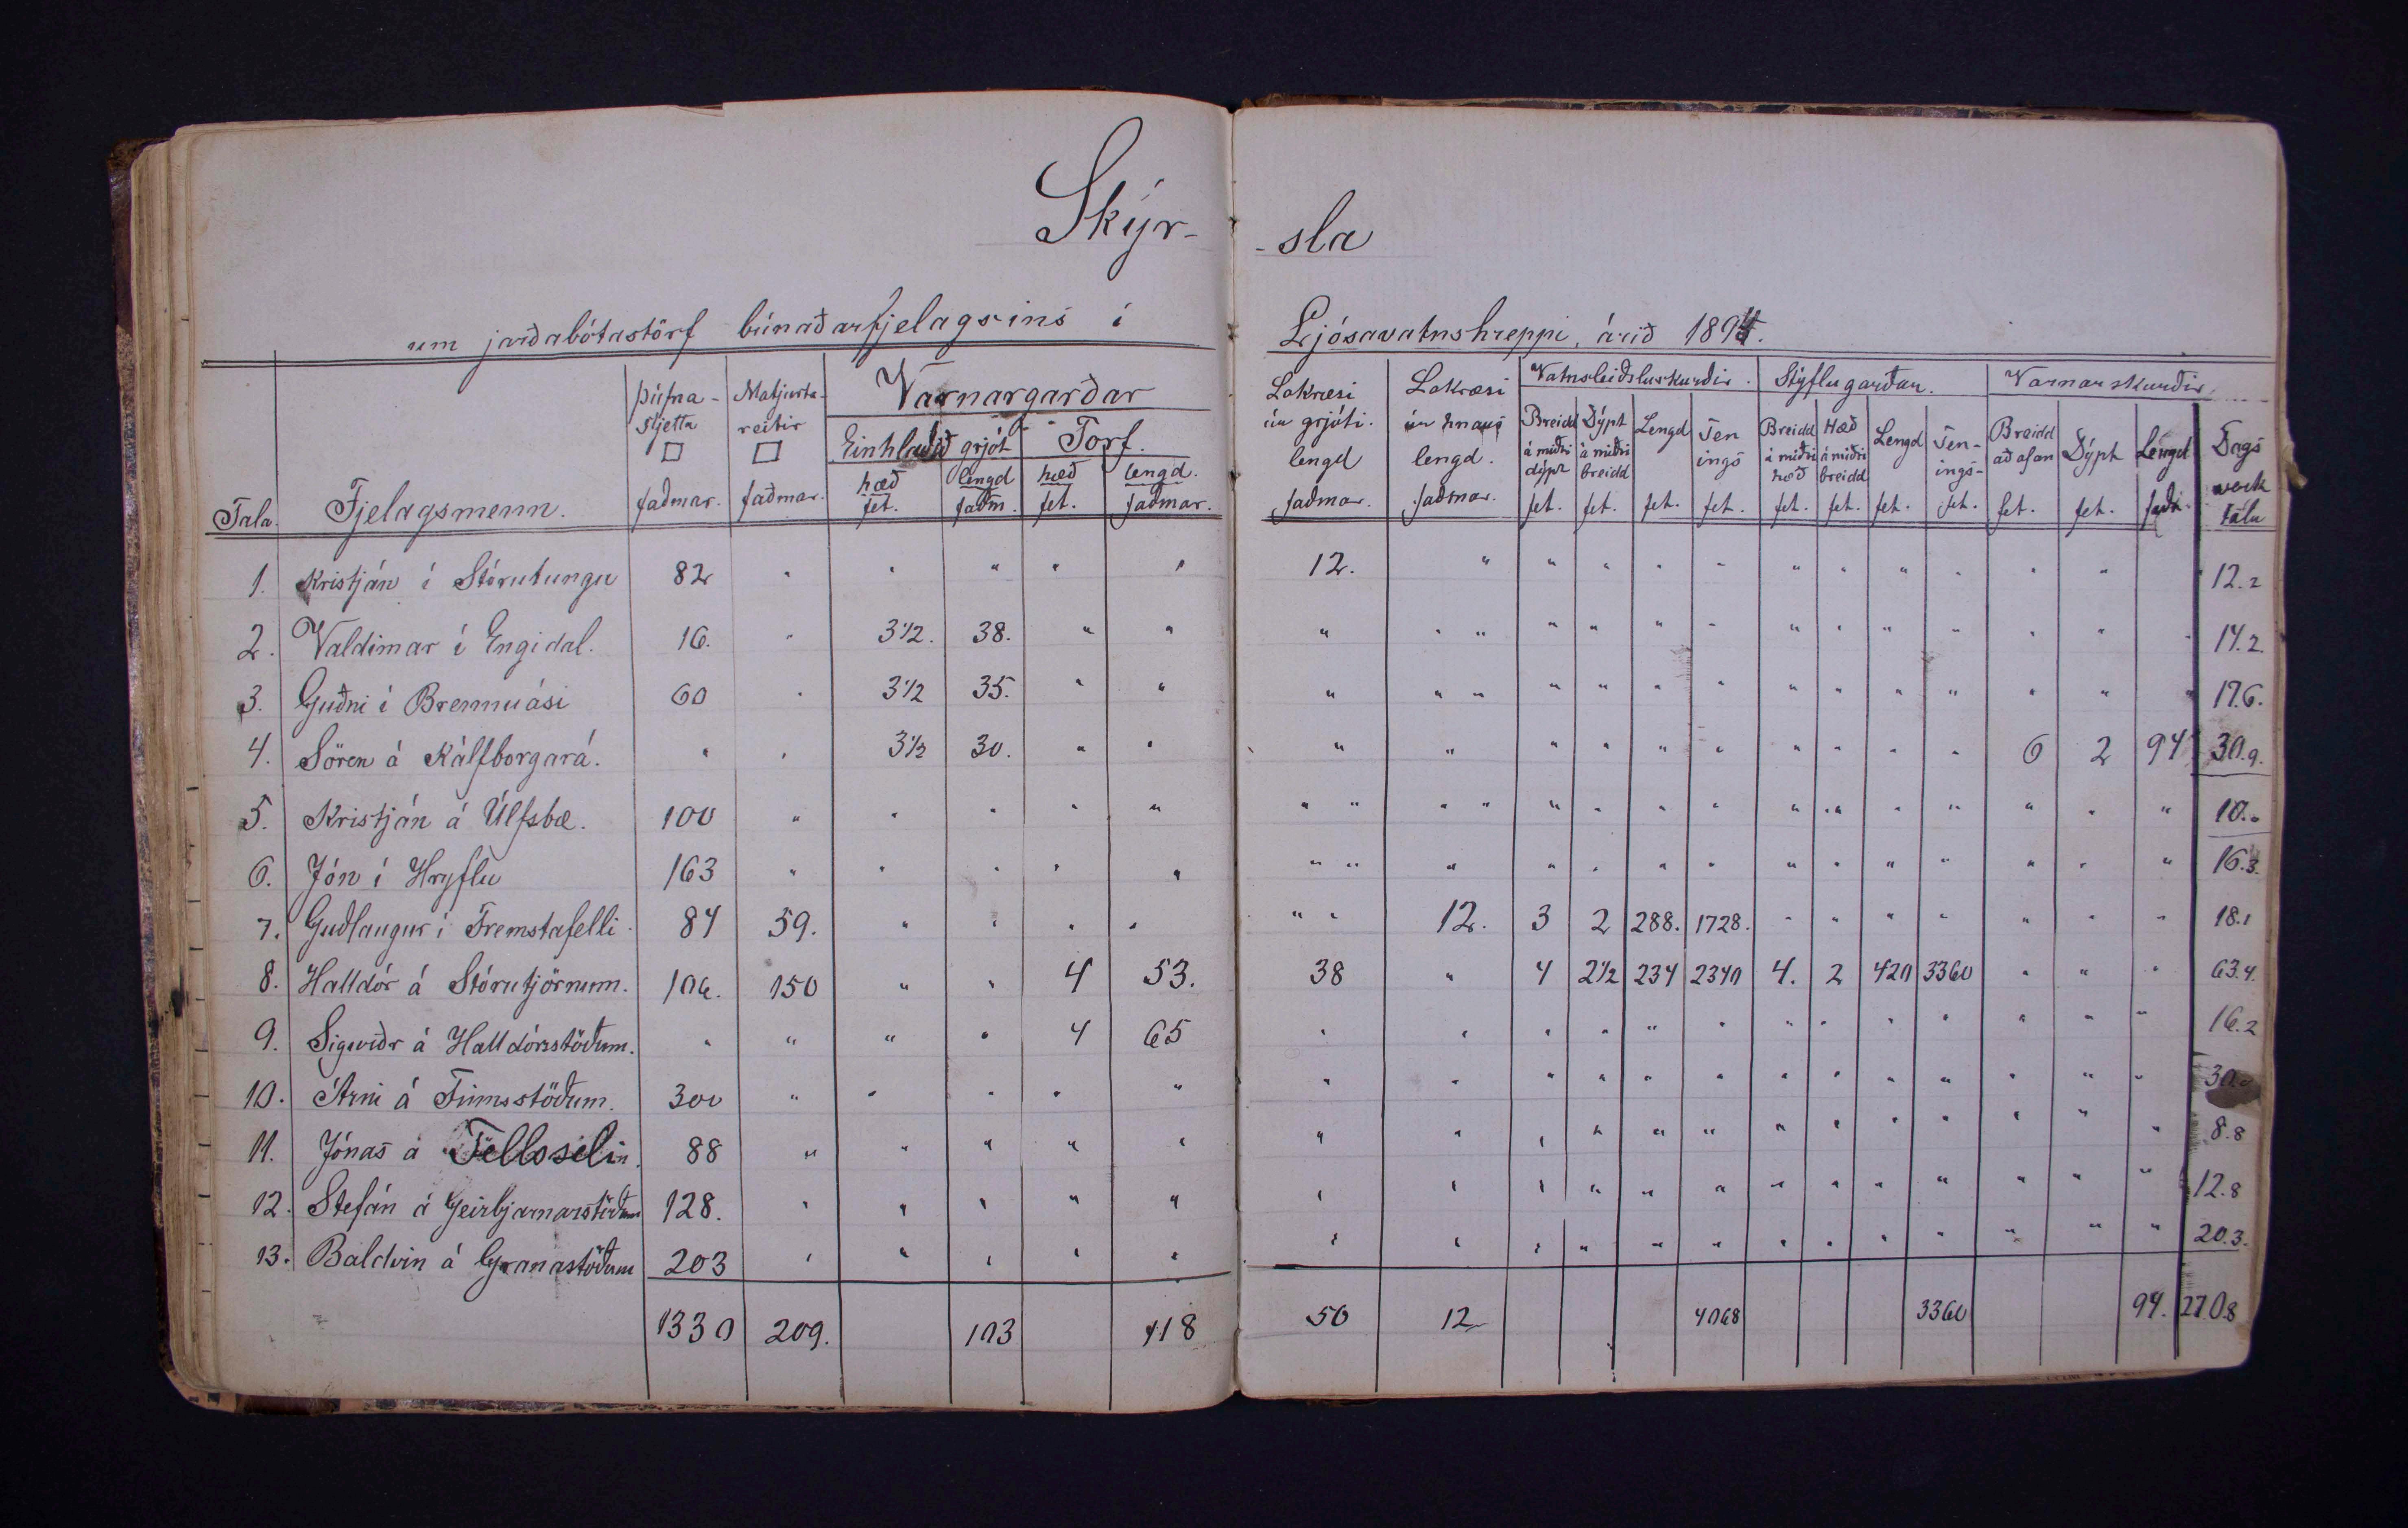 Skýr-
-sla
um jarðabótastörf búnaðarfjelagsins í
Ljósavatnshreppi, árið 1894.
Tala. Fjelagsmenn. Þúfna-sljetta □ faðmar. Matjurta-reitir □ faðmar. Varnargarðar Einhlaðið grjót hæð fet. lengd faðm. Torf. hæð fet. lengd. faðmar.
Lokræsi úr grjóti. lengd faðmar. Lokræsi úr hnaus lengd. faðmar. Vatnsleiðsluskurðir. Breidd á miðri dýpt fet. Dýpt á miðri breidd fet. Lengd fet. Ten ings fet. Stýflugarðar. Breidd á miðri hæð fet. Hæð á miðri breidd fet. Lengd fet. Ten-ings- fet. Varnarskurðir. Breidd að ofan fet. Dýpt fet. Lengd faðm. Dags verk tala
1. Kristján í Stórutungu 82 " " " " " 12. " " " " " " " " " " " 12.2
2. Valdimar í Engidal. 16. " 3 1/2. 38. " " " " " " " " " " " " " " " 14.2.
3. Guðni í Brennuási 60 " 3 1/2 35. " " " " " " " " " " " " " " " 17.6.
4. Sören á Kálfborgará. " " 3 1/2 30. " " " " " " " " " " " " 6 2 94 30.9.
5. Kristján á Úlfsbæ. 100 " " " " " " " " " " " " " " " " " " 10.0
6. Jón í Hryflu 163 " " " " " " " " " " " " " " " " " " 16.3.
7. Guðlaugur í Fremstafelli 84 59. " " " " " 12. 3 2 288. 1728. " " " " " " " 18.1
8. Halldór á Stórutjörnum. 106. 150 " " 4 53. 38 " 4 2 1/2 234 2340 4. 2 420 3360 " " " 63.4.
9. Sigurðr á Halldórsstöðum. " " " " 4 65 " " " " " " " " " " " " " 16.2
10. Árni á Finnsstöðum. 300 " " " " " " " " " " " " " " " " " " 30.0
11. Jónas á Fellsseli 88 " " " " " " " " " " " " " " " " " " 8.8
12. Stefán á Geirbjarnarstöðum 128. " " " " " " " " " " " " " " " " " " 12.8
13. Baldvin á Granastöðum 203 " " " " " " " " " " " " " " " " " " 20.3.
1330 209. 103 118 50 12 4068 3360 94. 270.8